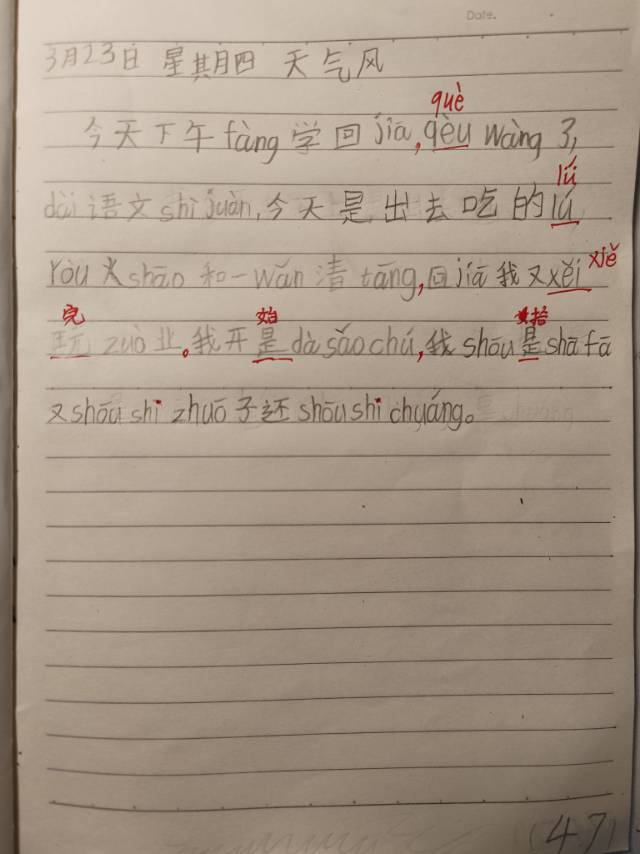 Date.
3月23日 星其月四 天气风
què
今天下午fàng学回jiā,qèu wàng了,
lú
dài语文shì juàn,今天是出去吃的lú
ròu火shāo和一wǎn清tāng,回jiā我又xěi xiě
完 始 拾
玩zuò业。我开是dà sǎo chú,我shōu是shā fā
又shōu shi zhuō子还shōu shi chuáng。
(47)